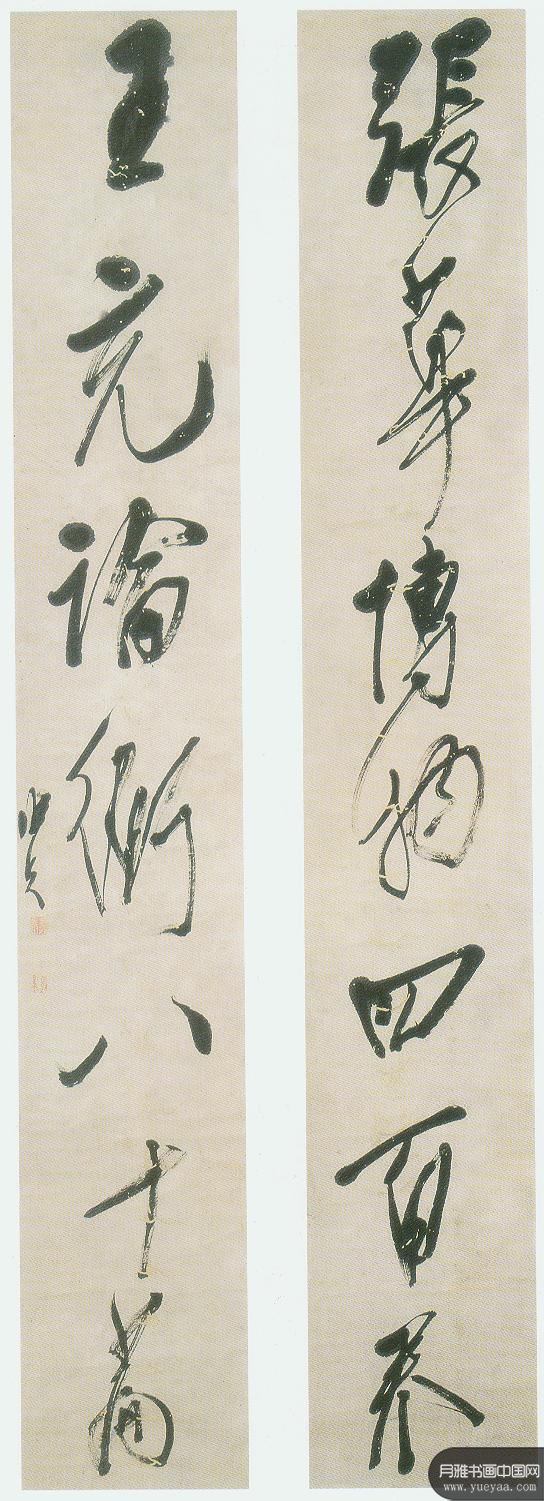 張華博物四百卷
王充論衡八十篇
月雅书画中国网
www.yueyaa.com